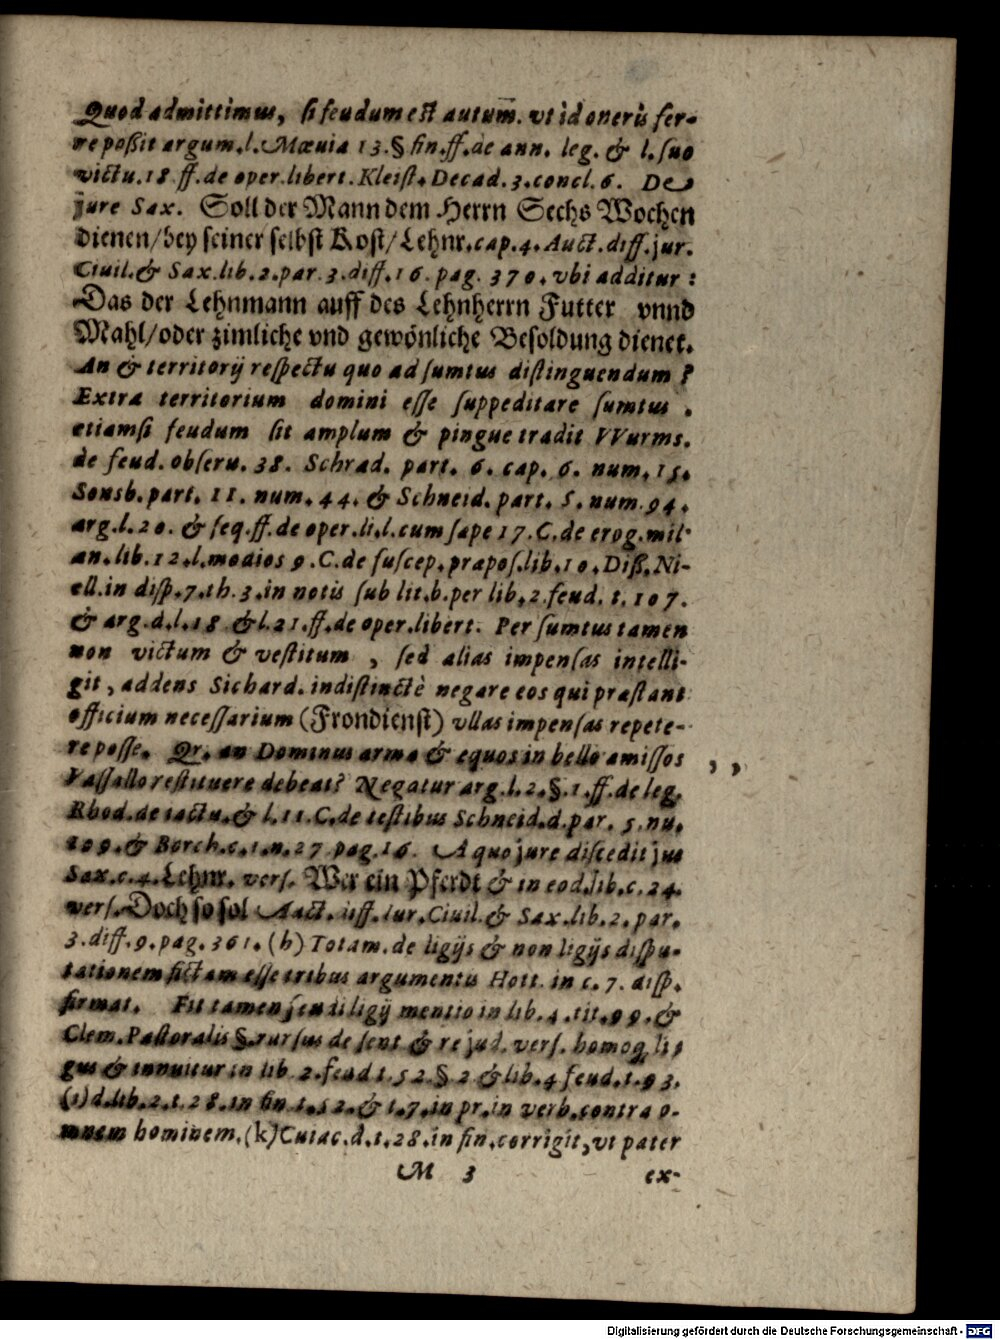 Quod admittimus, si feudum est autum̄. vt id oneris fer-
re poßit argum.l. Mæuia 13.§ fin.ff.de ann. leg. & l. suo
victu.18 ff.de oper.libert. Kleist. Decad. 3.concl. 6. De
jure Sax. Soll der Mann dem Herrn Sechs Wochen
dienen/bey seiner selbst Kost/Lehnr.cap.4. Auct. diff. jur.
Ciuil.& Sax.lib.2.par.3.diff.16.pag. 370. vbi additur:
Das der Lehnmann auff des Lehnherrn Futter vnnd
Mahl/oder zimliche vnd gewönliche Besoldung dienet.
An & territorij respectu quo ad sumtus distinguendum?
Extra territorium domini esse suppeditare sumtus.
etiamsi feudum sit amplum & pingue tradit VVurms.
de feud. obseru. 38. Schrad. part. 6. cap. 6. num. 15.
Sonsb. part. 11. num. 44. & Schneid. part. 5. num. 94.
arg.l.20. & seq.ff.de oper.li.l.cum sape 17.C.de erog.mil
an.lib.12.l.modios 9.C.de suscep.prapos.lib.10. Diß. Ni-
ell.in disp.7.th.3.in notis sub lit.b.per lib.2.feud. t. 107.
& arg.d.l.18 & l.21.ff.de oper.libert. Per sumtus tamen
non victum & vestitum, sed alias impensas intelli-
git, addens Sichard. indistinctè negare eos qui prastant
officium necessarium (Frondienst) vllas impensas repete-
re posse. Qr. an Dominus arma & equos in bello amissos
Vassallo restituere debeat? Negatur arg.l.2.§.1.ff.de leg.
Rhod.de iactu.& l.11.C.de testibus Schneid.d.par. 5.nu.
109.& Borch.c.1.n.27 pag.16. A quo jure discedit jus
Sax.c.4.Lehnr. vers. Wer ein Pferdt & in eod.lib.c.24.
vers. Doch so sol Auct. diff. Iur. Ciuil. & Sax.lib.2. par.
3.diff.9.pag.361. (h) Totam. de ligijs & non ligijs dispu-
tationem fictam esse tribus argumentis Hott. in c. 7. disp.
firmat. Fit tamen feudi ligij mentio in lib. 4. tit. 99. &
Clem. Pastoralis §.rursus de sent & re jud. vers. homoq; li,
gus & innuitur in lib. 2.feud t.52.§ 2 & lib.4 feud.t.93.
(i)d.lib.2.t.28.in fin t.52.& t.7.in pr.in verb.contra o-
mnem hominem.(k)Cuiac.d.t.28.in fin.corrigit,vt pater
M 3
ex-
Digitalisierung gefördert durch die Deutsche Forschungsgemeinschaft - DFG